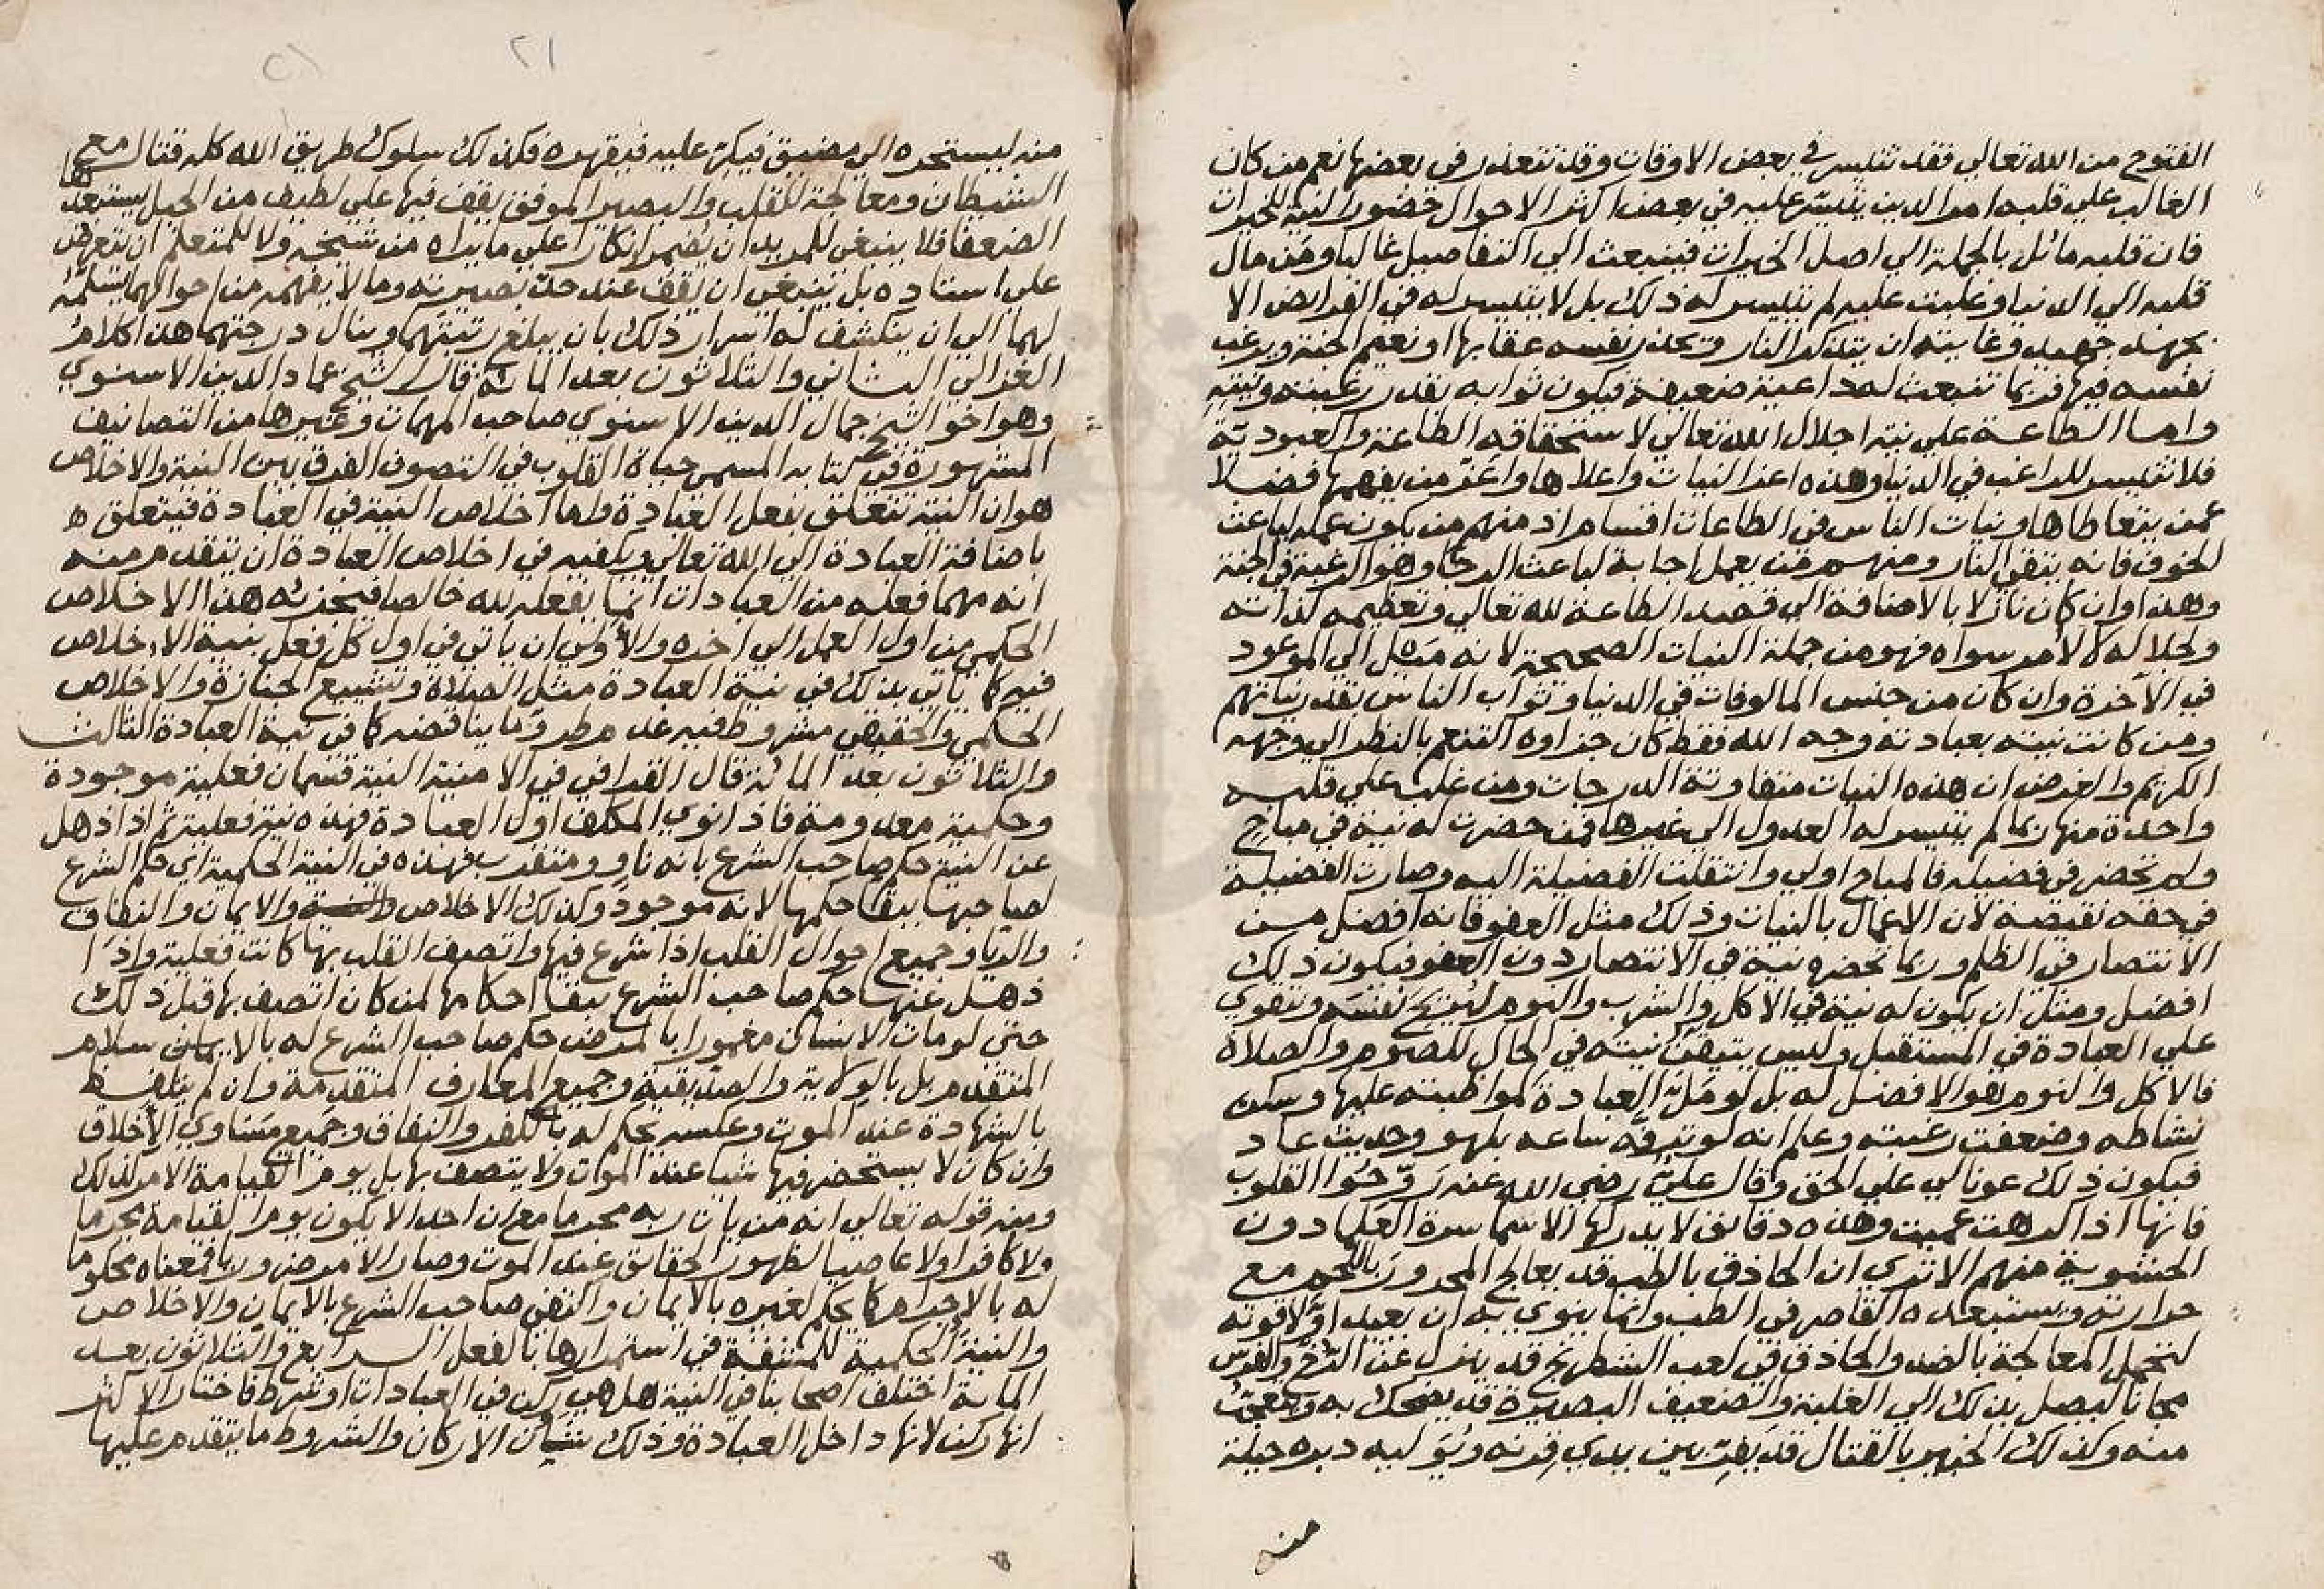 الفتوح من الله تعالي فقد تتيسر في بعض الاوقات وقد تتعذر في بعضها نعم من كان
الغالب علي قلبه امر الدين يتيسر عليه في بعض اكثر الاحوال حضور النية للخيرات
فان قلبه مائل بالجملة الي اصل الخيرات فينبعث الي التفاصيل غالبا ومن مال
قلبه الي الدنيا وغلبت عليه لم تتيسر له ذلك بل لا يتيسر له في الفرايض الا
بجهد جهيد وغايته ان يتذكر النار ويحذر نفسه عقابها او نعيم الجنة ويرغب
نفسه فيها فربما تنبعث له داعية ضعيفة فيكون ثوابه بقدر رغبته ونيته
واما الطاعة علي نية اجلال الله تعالي لاستحقاقه الطاعة والعبودية
فلا تتيسر للراغب في الدنيا وهذه اعز النيات واعلاها واعز من يفهمها فضلا
عمن يتعاطاها ونيات الناس في الطاعات اقسام اذ منهم من يكون عمله لباعث
الخوف فانه يتقي النار ومنهم من يعمل اجابة لباعث الرجا وهو الرغبة في الجنة
وهذا وان كان نازلا بالاضافة الي قصد الطاعة لله تعالي وتعظيمه لذاته
ولجلاله لا لامر سواه فهو من جملة النيات الصحيحة لانه ميل الي الموعود
في الآخرة وان كان من جنس المالوفات في الدنيا وثواب الناس بقدر نياتهم
ومن كانت نيته بعبادته وجه الله فقط كان جزاوه التنعم بالنظر الي وجهه
الكريم والغرض ان هذه النيات متفاوتة الدرجات ومن غلب علي قلبه
واحدة منها ربما لم يتيسر له العدول الي غيرها فمن حضرت له نية في مباح
ولم تحضر في فضيلة فالمباح اولي وانتقلت الفضيلة اليه وصارت الفضيلة
في حقه نقيصة لان الاعمال بالنيات وذلك مثل العفو فانه افضل من
الانتصار في الظلم وربما تحضره نية في الانتصار دون العفو فيكون ذلك
افضل ومثل ان يكون له نية في الاكل والشرب والنوم ليريح نفسه وتتقوي
علي العبادة في المستقبل وليس يتيقن نيته في الحال للصوم والصلاة
فالاكل والنوم هو الافضل له بل لو مل العبادة لمواظبته عليها وسكن
نشاطه وضعفت رغبته وعلم انه لو ترفه ساعة بلهو وحديث عاد
فيكون ذلك عونا لي علي الحق وقال علي رضي الله عنه روحوا القلوب
فانها اذا اكرهت عميت وهذه دقائق لا يدركها الا سماسرة العلما دون
الحشوية منهم الا تري ان الحاذق بالطب قد يعالج المحرور باللحم مع
حرارته ويستبعده القاصر في الطب وانما ينوي به ان يعيد اولا قوته
لتحمل المعالجة بالضد والحاذق في لعب الشطرنج قد ينزل عن الرخ والفرس
مجانا ليصل بذلك الي الغلبة والضعيف البصيرة قد يضحك به ويتعجب
منه وكذلك الخبير بالقتال قد يفر بين يدي قرنه ويوليه دبره حيلة
منه
٢١
منه ليستجره الي مضيق فيكر عليه فيقهره فكذلك سلوك طريق الله كله قتال مع
الشيطان ومعالجة للقلب والبصير الموفق يقف فيها علي لطيف من الحيل يستبعدها
الضعفا فلا ينبغي للمريد ان يضمر انكارا علي ما يراه من شيخه ولا للمتعلم ان يعترض
علي استاده بل ينبغي ان يقف عند حد بصيرته وما لا يفهمه من احوالهما يسلمه
لهما الي ان ينكشف له اسرار ذلك بان يبلغ رتبتهما وينال درجتهما هذا كلام
الغزالي الثاني والثلاثون بعد المائة قال الشيخ عماد الدين الاسنوي
وهو اخو الشيخ جمال الدين الاسنوي صاحب المهمات وغيرها من التصانيف
المشهورة في كتابه المسمي حياة القلوب في التصوف الفرق بين النية والاخلاص
هو ان النية تتعلق بفعل العبادة واما اخلاص النية في العبادة فيتعلق
باضافة العبادة الي الله تعالي ويكفيه في اخلاص العبادة ان يتقدم منه
انه مهما فعله من العبادات انما يفعله لله خالصا فيجزئه هذا الاخلاص
الحكمي من اول العمل الي اخره والاولي ان ياتي في اول كل فعل بنية الاخلاص
فيه كما ياتي بذلك في نية العبادة مثل الصلاة وتشييع الجنازة والاخلاص
الحكمي والحقيقي مشروط فيه عدم طرو ما يناقضه كما في نية العبادة الثالث
والثلاثون بعد المائة قال القرافي في الامنية النية قسمان فعلية موجودة
وحكمية معدومة فاذا نوي المكلف اول العبادة فهذه نية فعلية ثم اذا ذهل
عن النية حكم صاحب الشرع بانه ناو ومتقرب فهذه هي النية الحكمية اي حكم الشرع
لصاحبها ببقا حكمها لانه موجود وكذلك الاخلاص والايمان والنفاق
والريا وجميع احوال القلب اذا شرع فيها واتصف القلب بها كانت فعلية واذا
ذهل عنها حكم صاحب الشرع ببقا احكامها لمن كان اتصف بها قبل ذلك
حتي لو مات الانسان مغمورا بالمرض حكم صاحب الشرع له بالاسلام
المتقدم بل بالولاية والصديقية وجميع المعارف المتقدمة وان لم يتلفظ
بالشهادة عند الموت وعكسه يحكم له بالكفر والنفاق وجميع مساوي الاخلاق
وان كان لا يستحضر فيها شيا عند الموت ولا يتصف بها بل يوم القيامة الامر كذلك
ومنه قوله تعالي انه من يات ربه مجرما مع ان احدا لا يكون يوم القيامة مجرما
ولا كافرا ولا عاصيا لظهور الحقائق عند الموت وصار الامر ضروريا فمعناه محكوما
له بالاجرام كما يحكم لغيره بالايمان واكتفي صاحب الشرع بالايمان والاخلاص
والنية الحكمية للمشقة في استمرارها بالفعل الرابع والثلاثون بعد
المائة اختلف اصحابنا في النية هل هي ركن في العبادات او شرط فاختار الاكثر
انها ركن لانها داخل العبادة وذلك شان الاركان والشروط ما يتقدم عليها